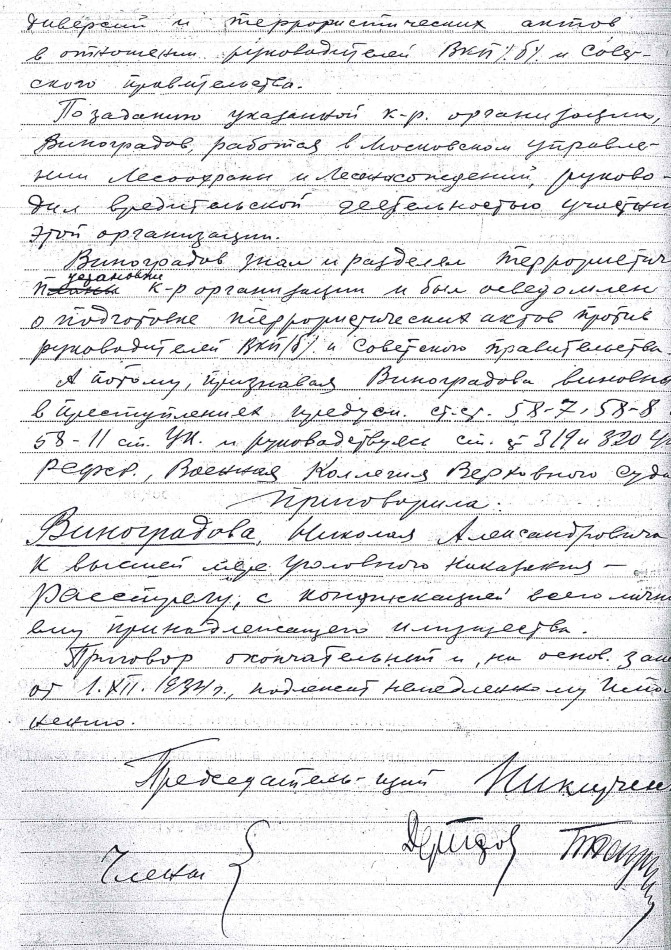 диверсий и террористических актов
в отношении руководителей ВКП/б/ и Совет-
ского правительства.
По заданию указанной к-р. организации,
Виноградов, работая в Московском управле-
нии Лесоохраны и Лесонасаждений, руково-
дил вредительской деятельностью участни
этой организации.
Виноградов знал и разделял террористич
установки
к-р организации и был осведомлен
о подготовке террористических актов против
руководителей ВКП/б/ и Советского правительства
А потому, признавая Виноградова виновны
в преступлениях предусм. ст.ст. 58-7, 58-8
58-11 ст. УК. и руководствуясь ст. ст 319 и 320 У
РСФСР., Военная Коллегия Верховного суда
Приговорила:
Виноградова, Николая Александровича
к высшей мере уголовного наказания –
Расстрелу, с конфискацией всего лично
ему принадлежащего имущества.
Приговор окончательный и, на основ. зак
от 1.XII.1934г., подлежит немедленному испо
нению.
Председатель-щий Никитчен
Члены